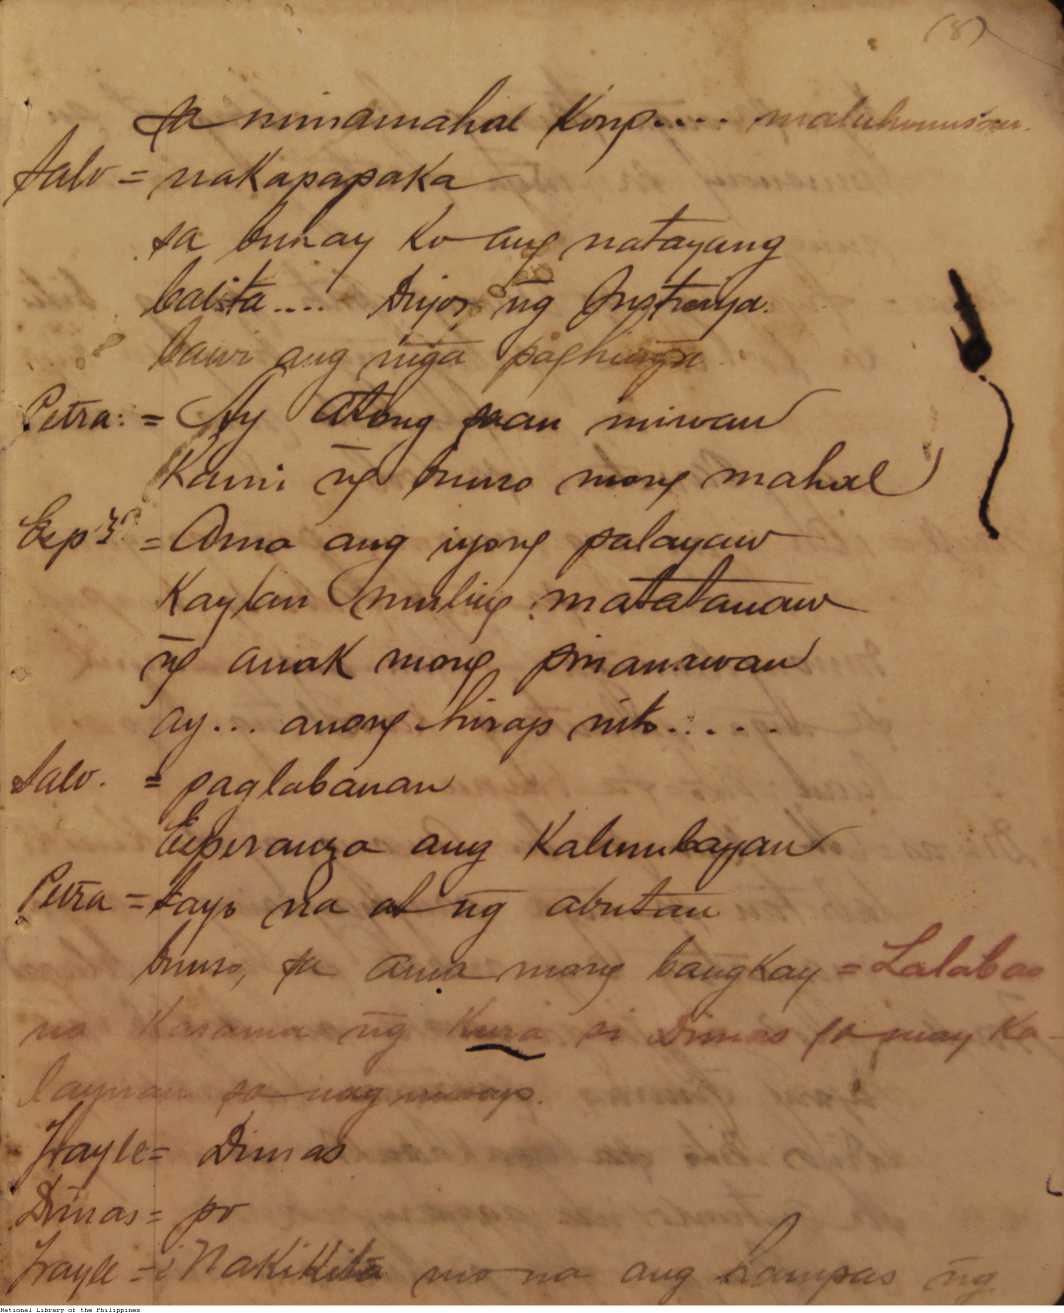 (8)
sa minamahal Kong.... malulunusan.
Salv = nakapapaka
sa buhay Ko ang natayang
balita.... Diyos n̄g Justisiya.
bawi ang n̄ga paghin̄ga
Petra: = Ay Atong saan iniwan
Kami n̄g bunso mong mahal
Esp.za = Ama ang iyong palayaw
Kaylan muling matatanaw
n̄g anak mong pinanawan
ay... anong hirap nito.....
Salv. = paglabanan
Esperanza ang Kalumbayan
Petra = tayo na at n̄g abutan
bunso, sa ama mong ban̄gkay = Lalabas
na Kasama n̄g Kura si Dimas sa may Ka-
layuan sa nag uusap.
Frayle = Dimas
Dimas = po
Frayle = ¿Nakikita mo na ang hampas n̄g
National Library of the Philippines